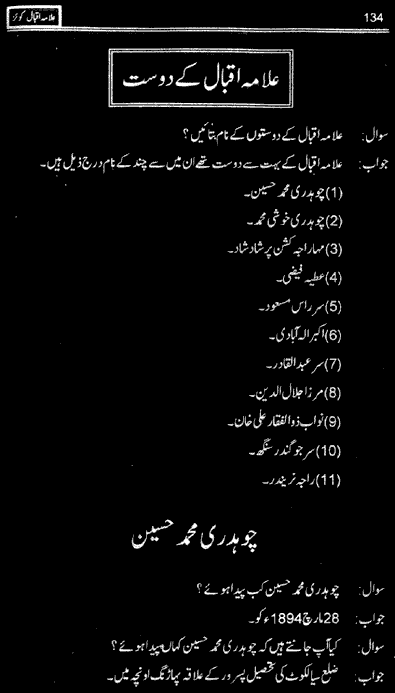 134 علامہ اقبال کوئز
علامہ اقبال کے دوست
سوال: علامہ اقبال کے دوستوں کے نام بتائیں؟
جواب: علامہ اقبال کے بہت سے دوست تھے ان میں سے چند کے نام درج ذیل ہیں۔
(1) چوہدری محمد حسین۔
(2) چوہدری خوشی محمد۔
(3) مہاراجہ کشن پرشاد شاد۔
(4) عطیہ فیضی۔
(5) سر راس مسعود۔
(6) اکبر الہ آبادی۔
(7) سر عبدالقادر۔
(8) مرزا جلال الدین۔
(9) نواب ذوالفقار علی خان۔
(10) سر جوگندر سنگھ۔
(11) راجہ نریندر۔
چوہدری محمد حسین
سوال: چوہدری محمد حسین کب پیدا ہوئے؟
جواب: 28 مارچ 1894ء کو۔
سوال: کیا آپ جانتے ہیں کہ چوہدری محمد حسین کہاں پیدا ہوئے؟
جواب: ضلع سیالکوٹ کی تحصیل پسرور کے علاقہ پہاڑنگ اونچہ میں۔